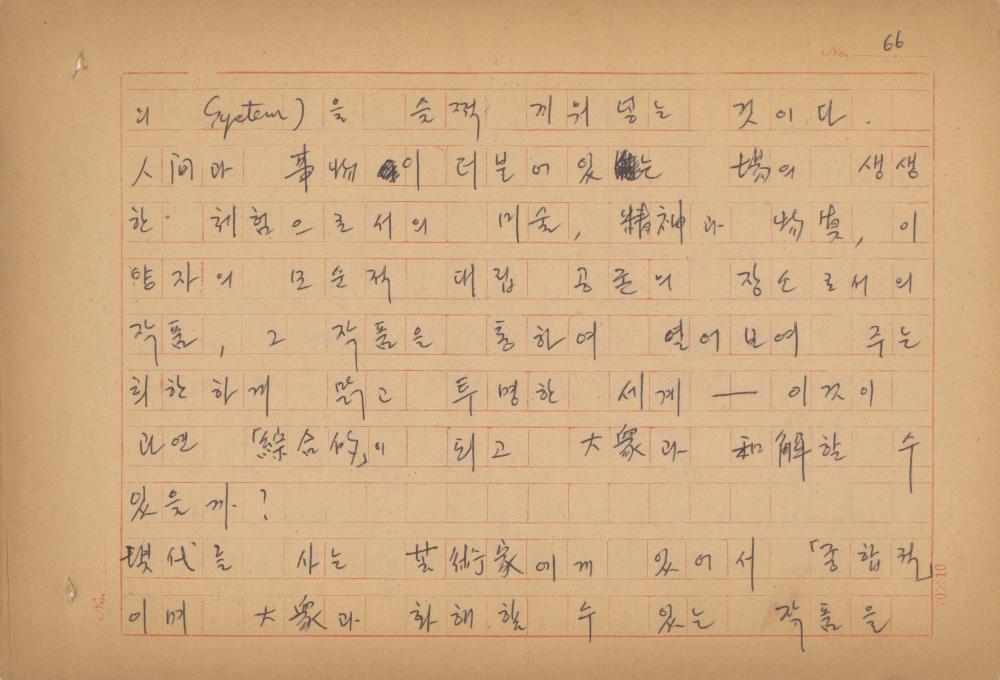 No. 66
의 System)을 슬쩍 끼워 넣는 것이다.
人间과 事物이 더불어 있는 場의 생생
한 체험으로서의 미술, 精神과 物質, 이
양자의 모순적 대립 공존의 장소로서의
작품, 그 작품을 통하여 열어 보여 주는
희한하게 맑고 투명한 세계 — 이것이
과연 「綜合的」이 되고 大衆과 和解할 수
있을까?
現代를 사는 芸術家에게 있어서 「종합적」
이며 大衆과 화해할 수 있는 작품을
No.
20×10